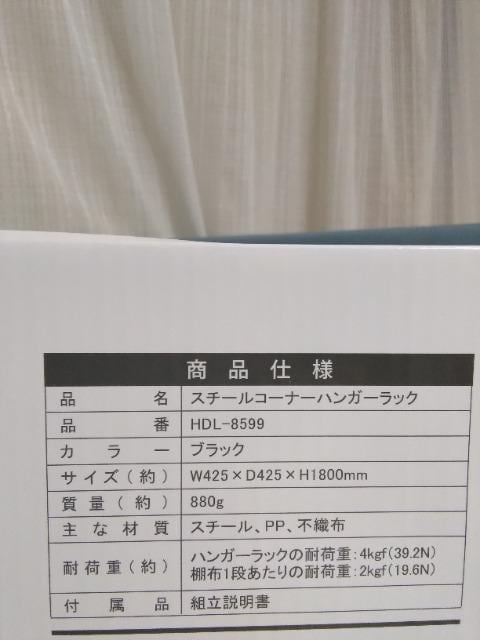 商品仕様
品名 スチールコーナーハンガーラック
品番 HDL-8599
カラー ブラック
サイズ(約) W425×D425×H1800mm
質量(約) 880g
主な材質 スチール、PP、不織布
耐荷重(約) ハンガーラックの耐荷重:4kgf(39.2N)
棚布1段あたりの耐荷重:2kgf(19.6N)
付属品 組立説明書